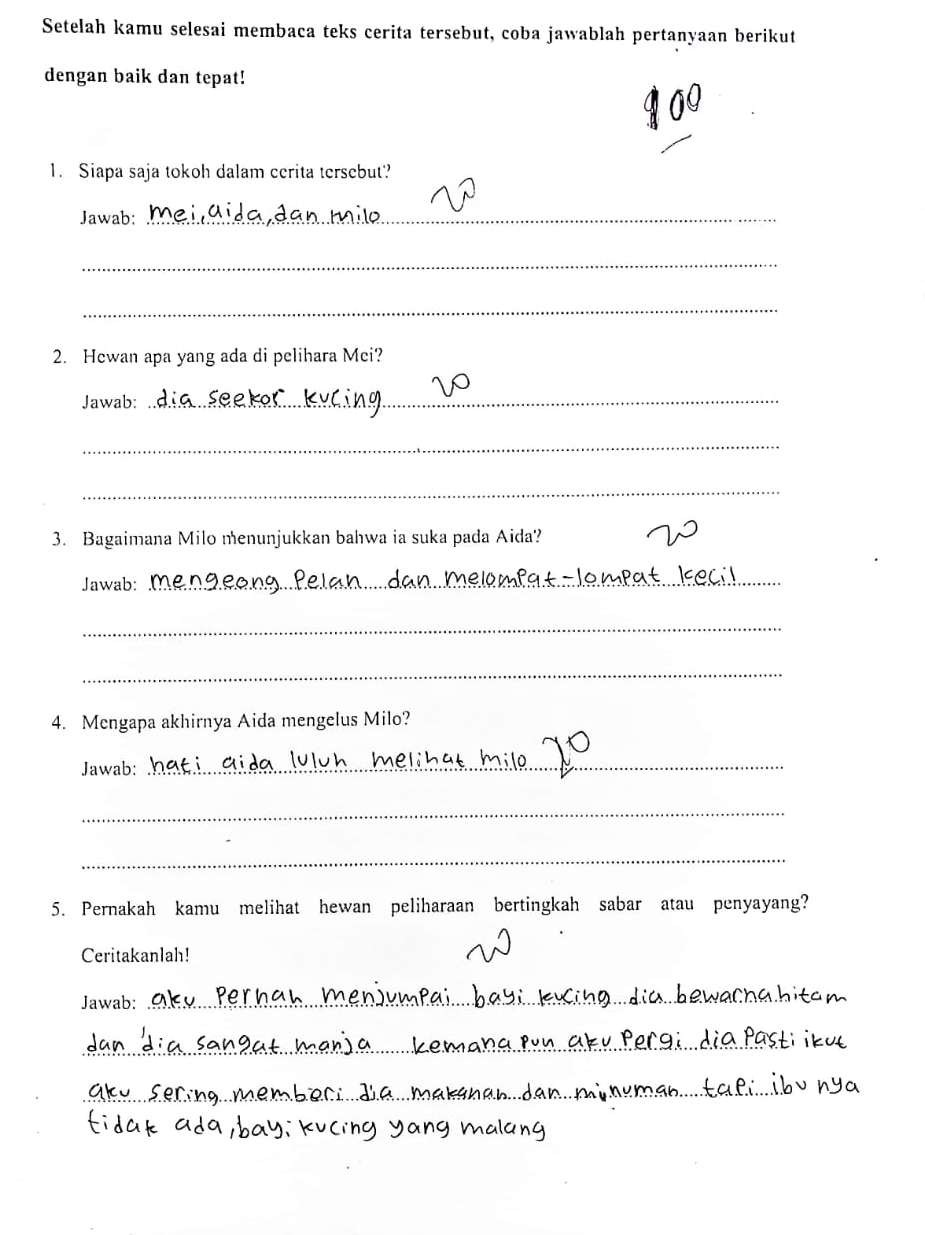 Setelah kamu selesai membaca teks cerita tersebut, coba jawablah pertanyaan berikut
dengan baik dan tepat!
100
1. Siapa saja tokoh dalam cerita tersebut?
20
Jawab: mei, aida, dan milo
2. Hewan apa yang ada di pelihara Mei?
20
Jawab: dia seekor kucing
3. Bagaimana Milo menunjukkan bahwa ia suka pada Aida?
20
Jawab: mengeong pelan dan melompat-lompat kecil
4. Mengapa akhirnya Aida mengelus Milo?
20
Jawab: hati aida luluh melihat milo
5. Pernakah kamu melihat hewan peliharaan bertingkah sabar atau penyayang?
Ceritakanlah!
20
Jawab: aku pernah menjumpai bayi kucing dia bewarna hitam
dan dia sangat manja kemana pun aku pergi dia pasti ikut
aku sering memberi dia makanan dan minuman tapi ibu nya
tidak ada, bayi kucing yang malang